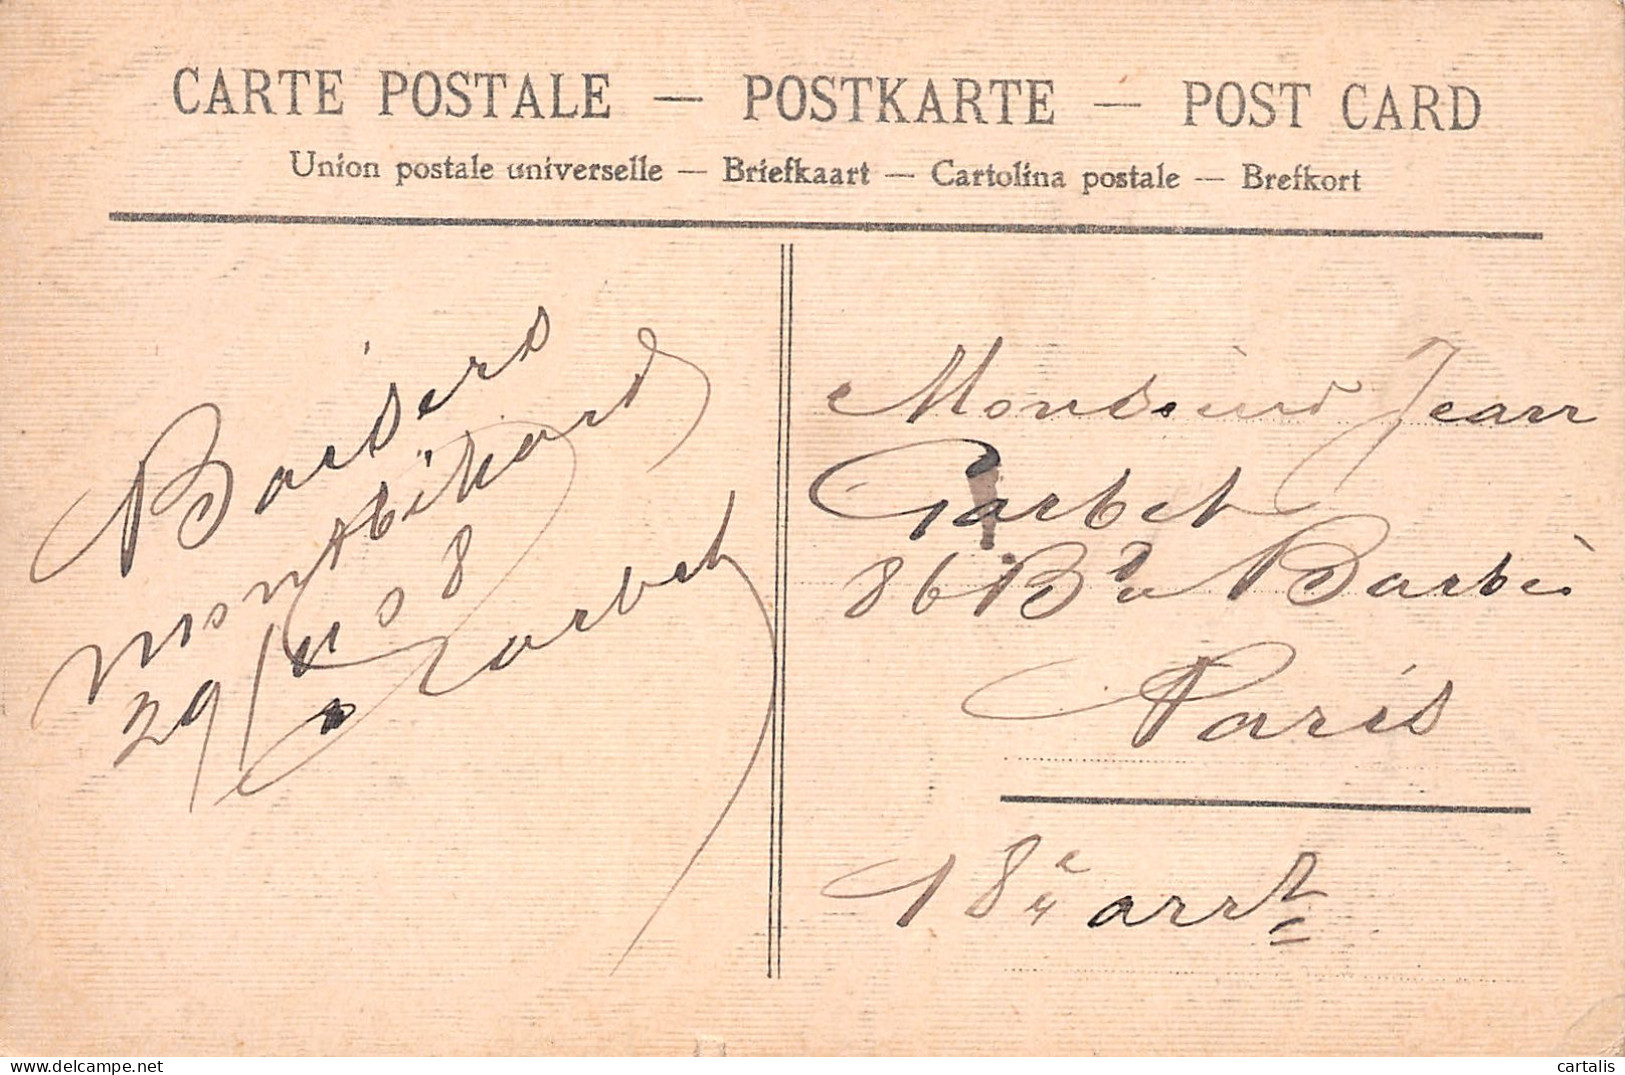 CARTE POSTALE — POSTKARTE — POST CARD
Union postale universelle — Briefkaart — Cartolina postale — Brefkort
Baisers
Montbéliard
29/11 08
Garbet
Monsieur Jean
Garbet
86 Bd Barbès
Paris
18e arrt
cartalis